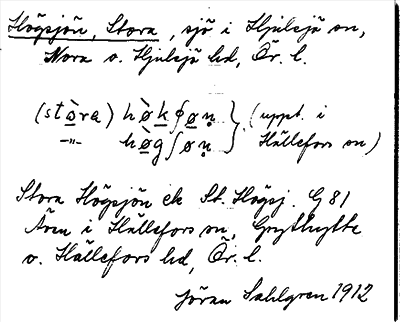 Högsjön, Stora, sjö i Hjulsjö sn,
Nora o. Hjulsjö hd, Ör. l.
(stò̱ra) hø̀ḵʃøṇ } (uppt. i
—"— hø̱̀gʃøṇ } Hällefors sn)
Stora Högsjön ek St. Högsj. G 81
Även i Hällefors sn, Grythytte
o. Hällefors hd, Ör. l.
Jöran Sahlgren 1912